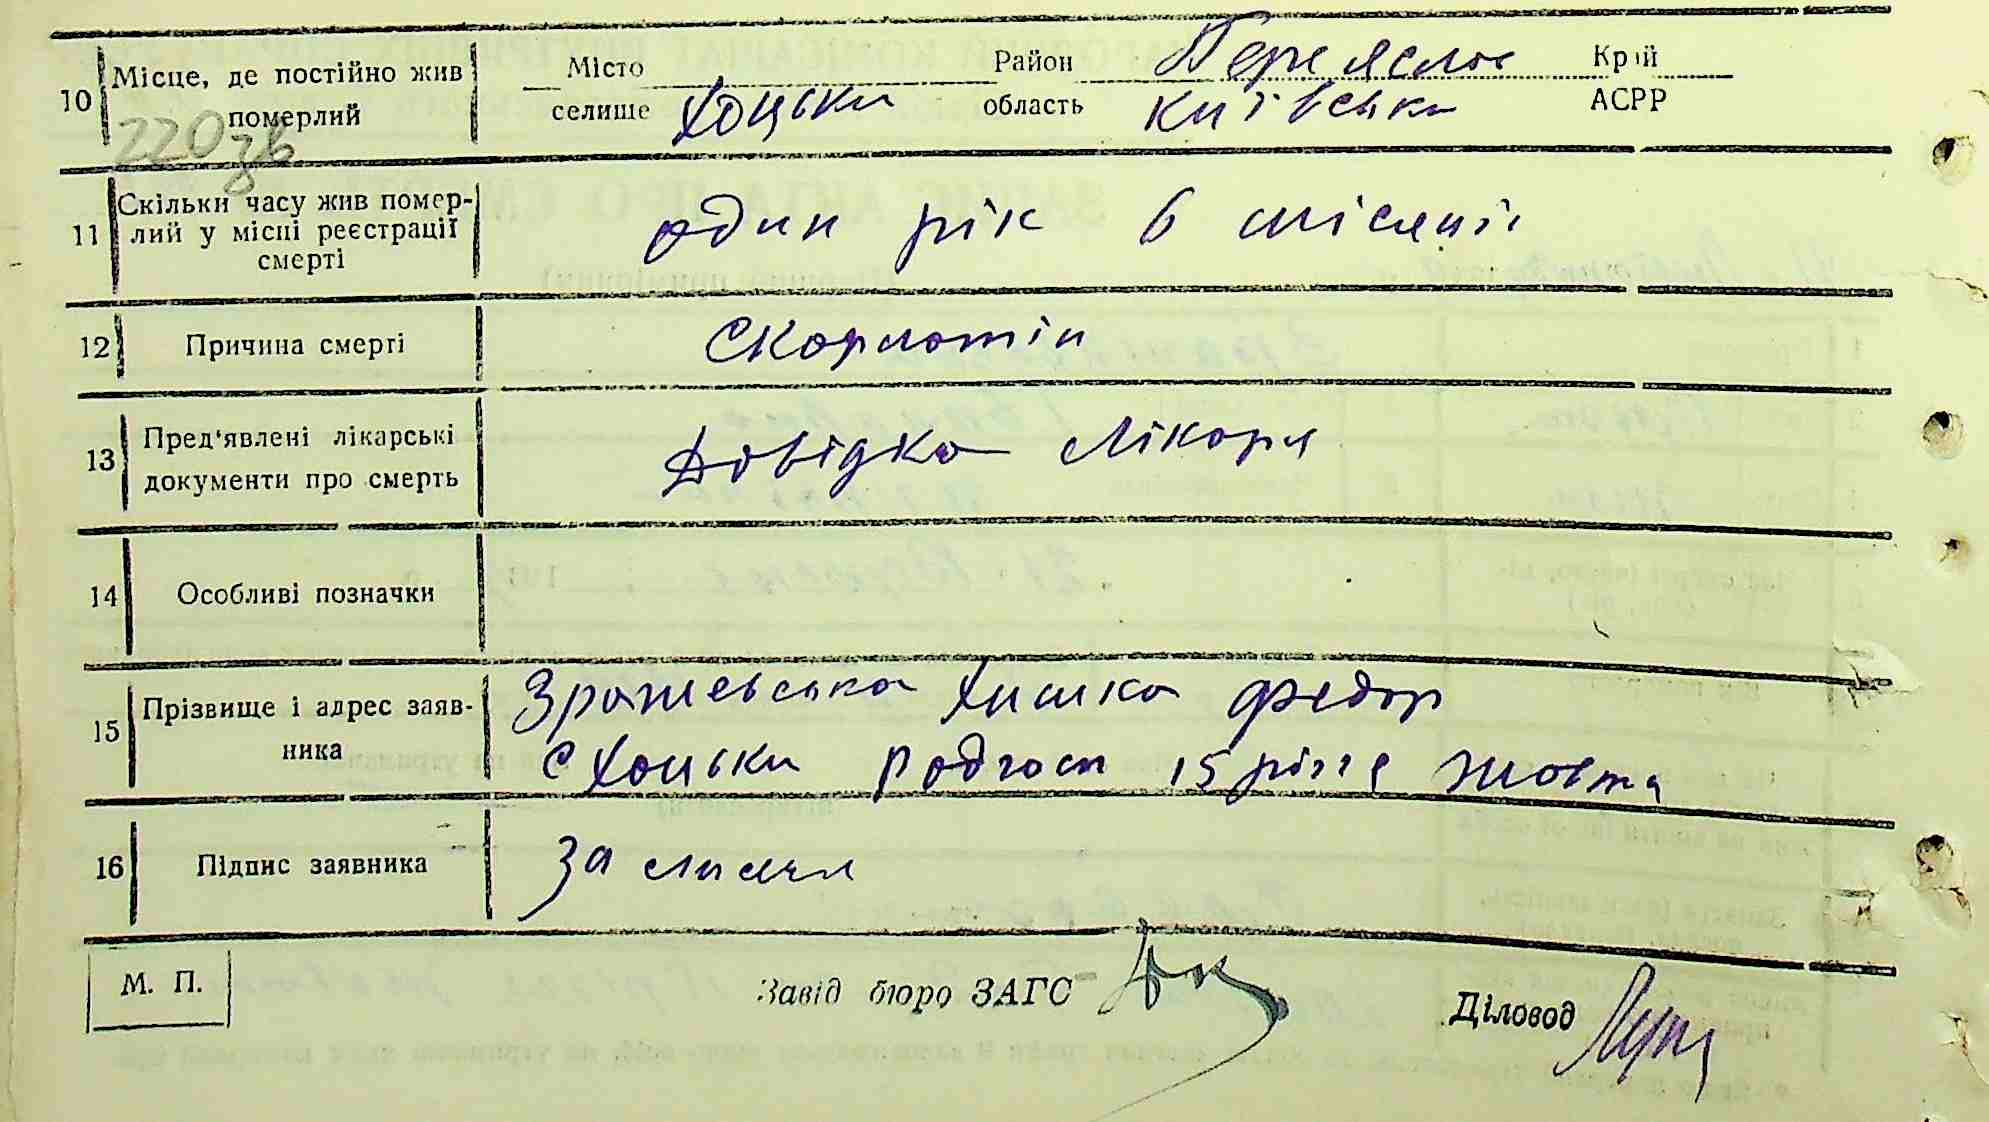 Місто Район Переяслов Край
10 Місце, де постійно жив померлий селище Хоцьки область київська АСРР
220зв
11 Скільки часу жив помер-
лий у місці реєстрації
смерті
один рік 6 місяців
12 Причина смерті Скорлотін
13 Пред'явлені лікарські
документи про смерть
Довідка Лікоря
14 Особливі позначки
15 Прізвище і адрес заяв-
ника
Зражевська Федор
с Хоцьки Родгосп 15 річчя жовтн
16 Підпис заявника За
М. П. Завід бюро ЗАГС Діловод